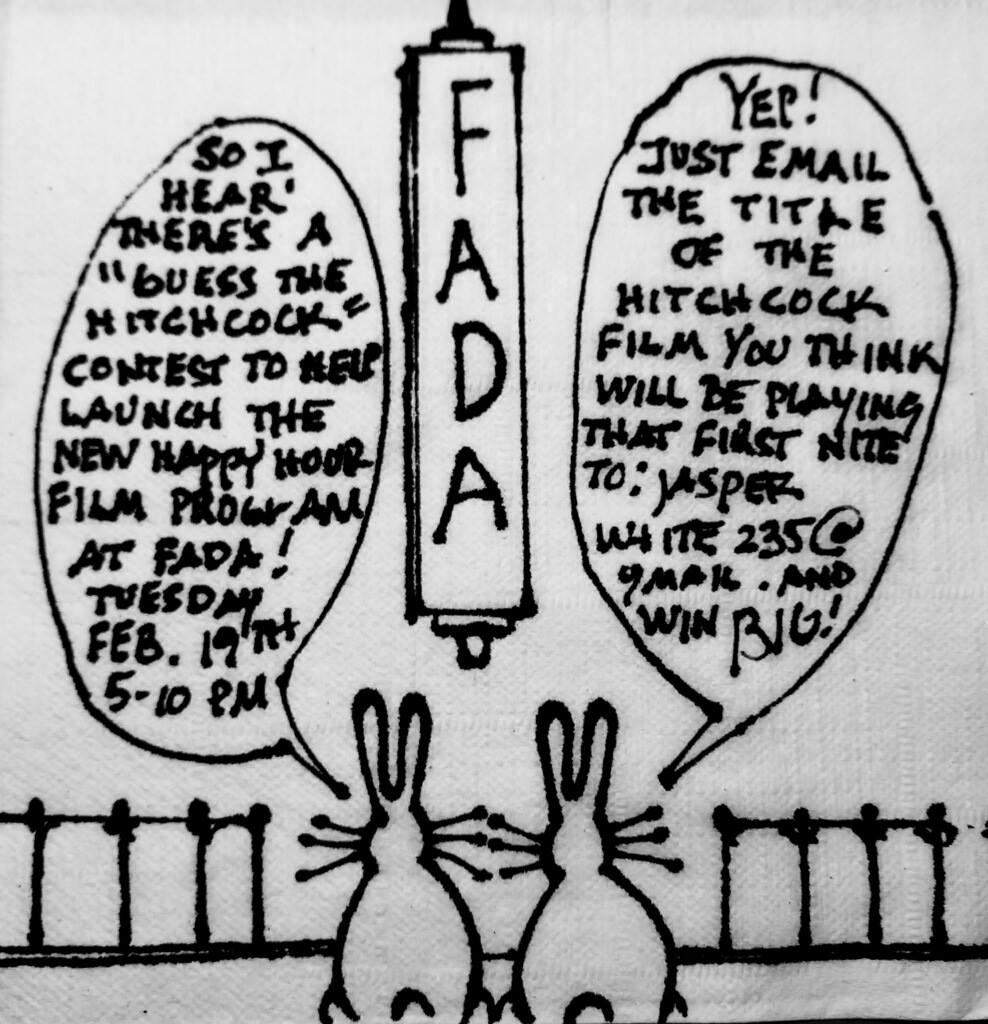 SO I
HEAR
THERE'S A
"GUESS THE
HITCHCOCK"
CONTEST TO HELP
LAUNCH THE
NEW HAPPY HOUR
FILM PROGRAM
AT FADA!
TUESDAY
FEB. 19TH
5-10 PM
FADA
YEP!
JUST EMAIL
THE TITLE
OF THE
HITCHCOCK
FILM YOU THINK
WILL BE PLAYING
THAT FIRST NITE
TO: JASPER
WHITE 235@
GMAIL . AND
WIN BIG!